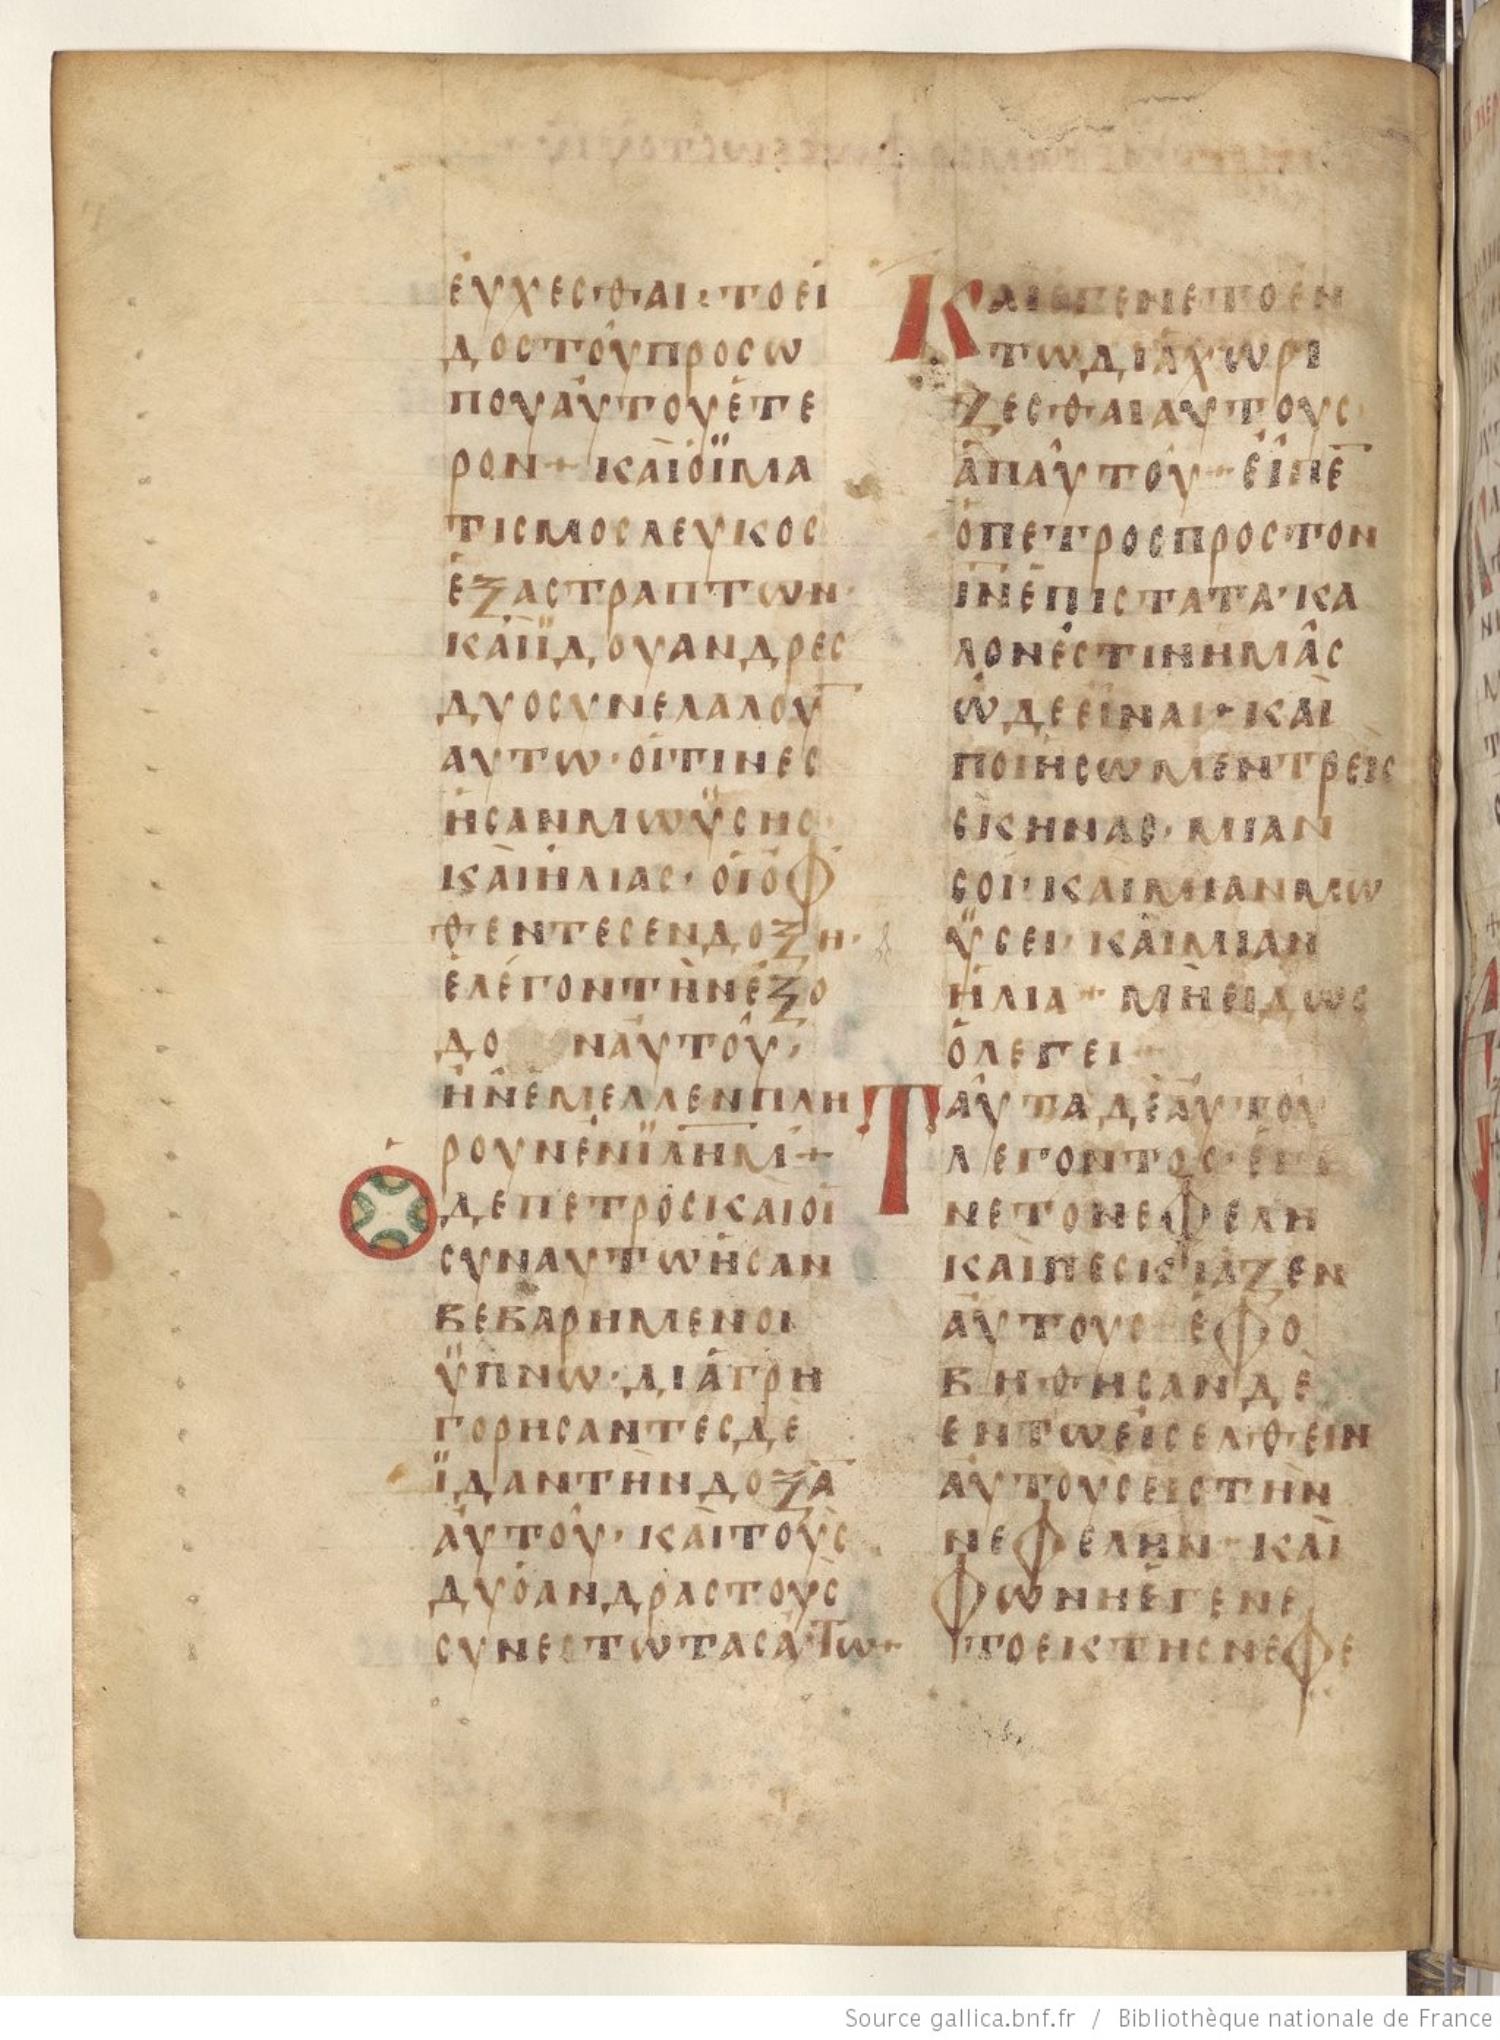 ΕΥΧΕСΘΑΙ· ΤΟ ΕΙ
ΔΟС ΤΟΥ ΠΡΟСΩ
ΠΟΥ ΑΥΤΟΥ ΕΤΕ
ΡΟΝ + ΚΑΙ Ο ΪΜΑ
ΤΙСΜΟС ΛΕΥΚΟС
ΕΞΑСΤΡΑΠΤΩΝ·
ΚΑΙ ΪΔΟΥ ΑΝΔΡЕС
ΔΥΟ СΥΝΕΛΑΛΟΥ̅
ΑΥΤΩ· ΟΙΤΙΝΕС
ΗСΑΝ ΜΩΫСΗС·
ΚΑΙ ΗΛΙΑС· ΟΙ ΟΦ
ΘΕΝΤΕС ΕΝ ΔΟΞΗ·
ΕΛΕΓΟΝ ΤΗΝ ΕΞΟ
ΔΟΝ ΑΥΤΟΥ,
ΗΝ ΕΜΕΛΛΕΝ ΠΛΗ
ΡΟΥΝ ΕΝ Ι̅Λ̅Η̅Μ̅ +
Ο ΔΕ ΠΕΤΡΟС ΚΑΙ ΟΙ
СΥΝ ΑΥΤΩ ΗСΑΝ
ΒΕΒΑΡΗΜΕΝΟΙ
ΫΠΝΩ· ΔΙΑΓΡΗ
ΓΟΡΗСΑΝΤΕС ΔΕ
ΪΔΑΝ ΤΗΝ ΔΟΞΑ̅
ΑΥΤΟΥ· ΚΑΙ ΤΟΥС
ΔΥΟ ΑΝΔΡΑС ΤΟΥС
СΥΝΕСΤΩΤΑС ΑΥΤΩ +
ΚΑΙ ΕΓΕΝΕΤΟ ΕΝ
ΤΩ ΔΙΑΧΩΡΙ
ΖΕСΘΑΙ ΑΥΤΟΥС
ΑΠ ΑΥΤΟΥ + ΕΙΠΕ̅
Ο ΠΕΤΡΟС ΠΡΟС ΤΟΝ
Ι̅Ν̅ ΕΠΙСΤΑΤΑ· ΚΑ
ΛΟΝ ΕСΤΙΝ ΗΜΑС
ΩΔΕ ΕΙΝΑΙ + ΚΑΙ
ΠΟΙΗСΩΜΕΝ ΤΡΕΙС
СΚΗΝΑС· ΜΙΑΝ
СΟΙ· ΚΑΙ ΜΙΑΝ ΜΩ
ΫСΕΙ· ΚΑΙ ΜΙΑΝ
ΗΛΙΑ + ΜΗ ΕΙΔΩС
Ο ΛΕΓΕΙ
ΤΑΥΤΑ ΔΕ ΑΥΤΟΥ
ΛΕΓΟΝΤΟС· ΕΓΕ
ΝΕΤΟ ΝΕΦΕΛΗ
ΚΑΙ ΠΕСΚΙΑΖΕΝ
ΑΥΤΟΥС ΕΦΟ
ΒΗΘΗСΑΝ ΔΕ
ΕΝ ΤΩ ΕΙСΕΛΘΕΙΝ
ΑΥΤΟΥС ΕΙС ΤΗΝ
ΝΕΦΕΛΗΝ· ΚΑΙ
ΦΩΝΗ ΕΓΕΝΕ
ΤΟ ΕΚ ΤΗС ΝΕΦΕ
Source gallica.bnf.fr / Bibliothèque nationale de France